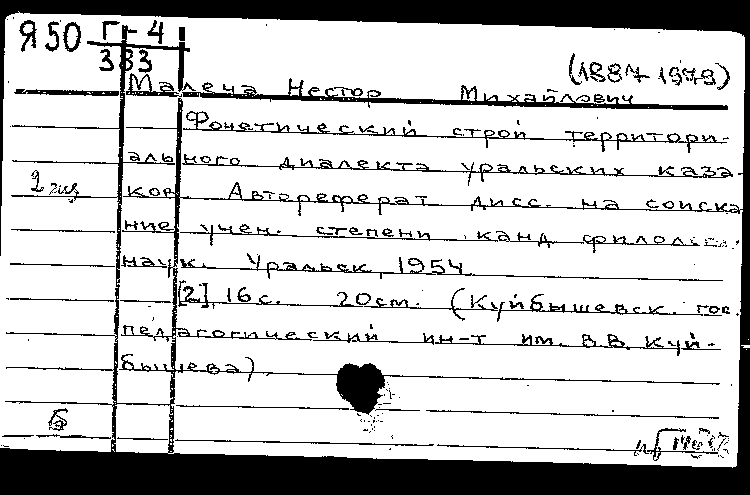 Я50 Г-4
383
(1887-1979)
Малеча Нестор Михайлович
Фонетический строй территори-
ального диалекта уральских каза-
2 экз
ков. Автореферат дисс. на соиска
ние учен. степени канд. филолог.
наук. Уральск, 1954
[2], 16 с. 20 см. (Куйбышевск. гос.
педагогический ин-т им. В.В. Куй-
бышева).
б